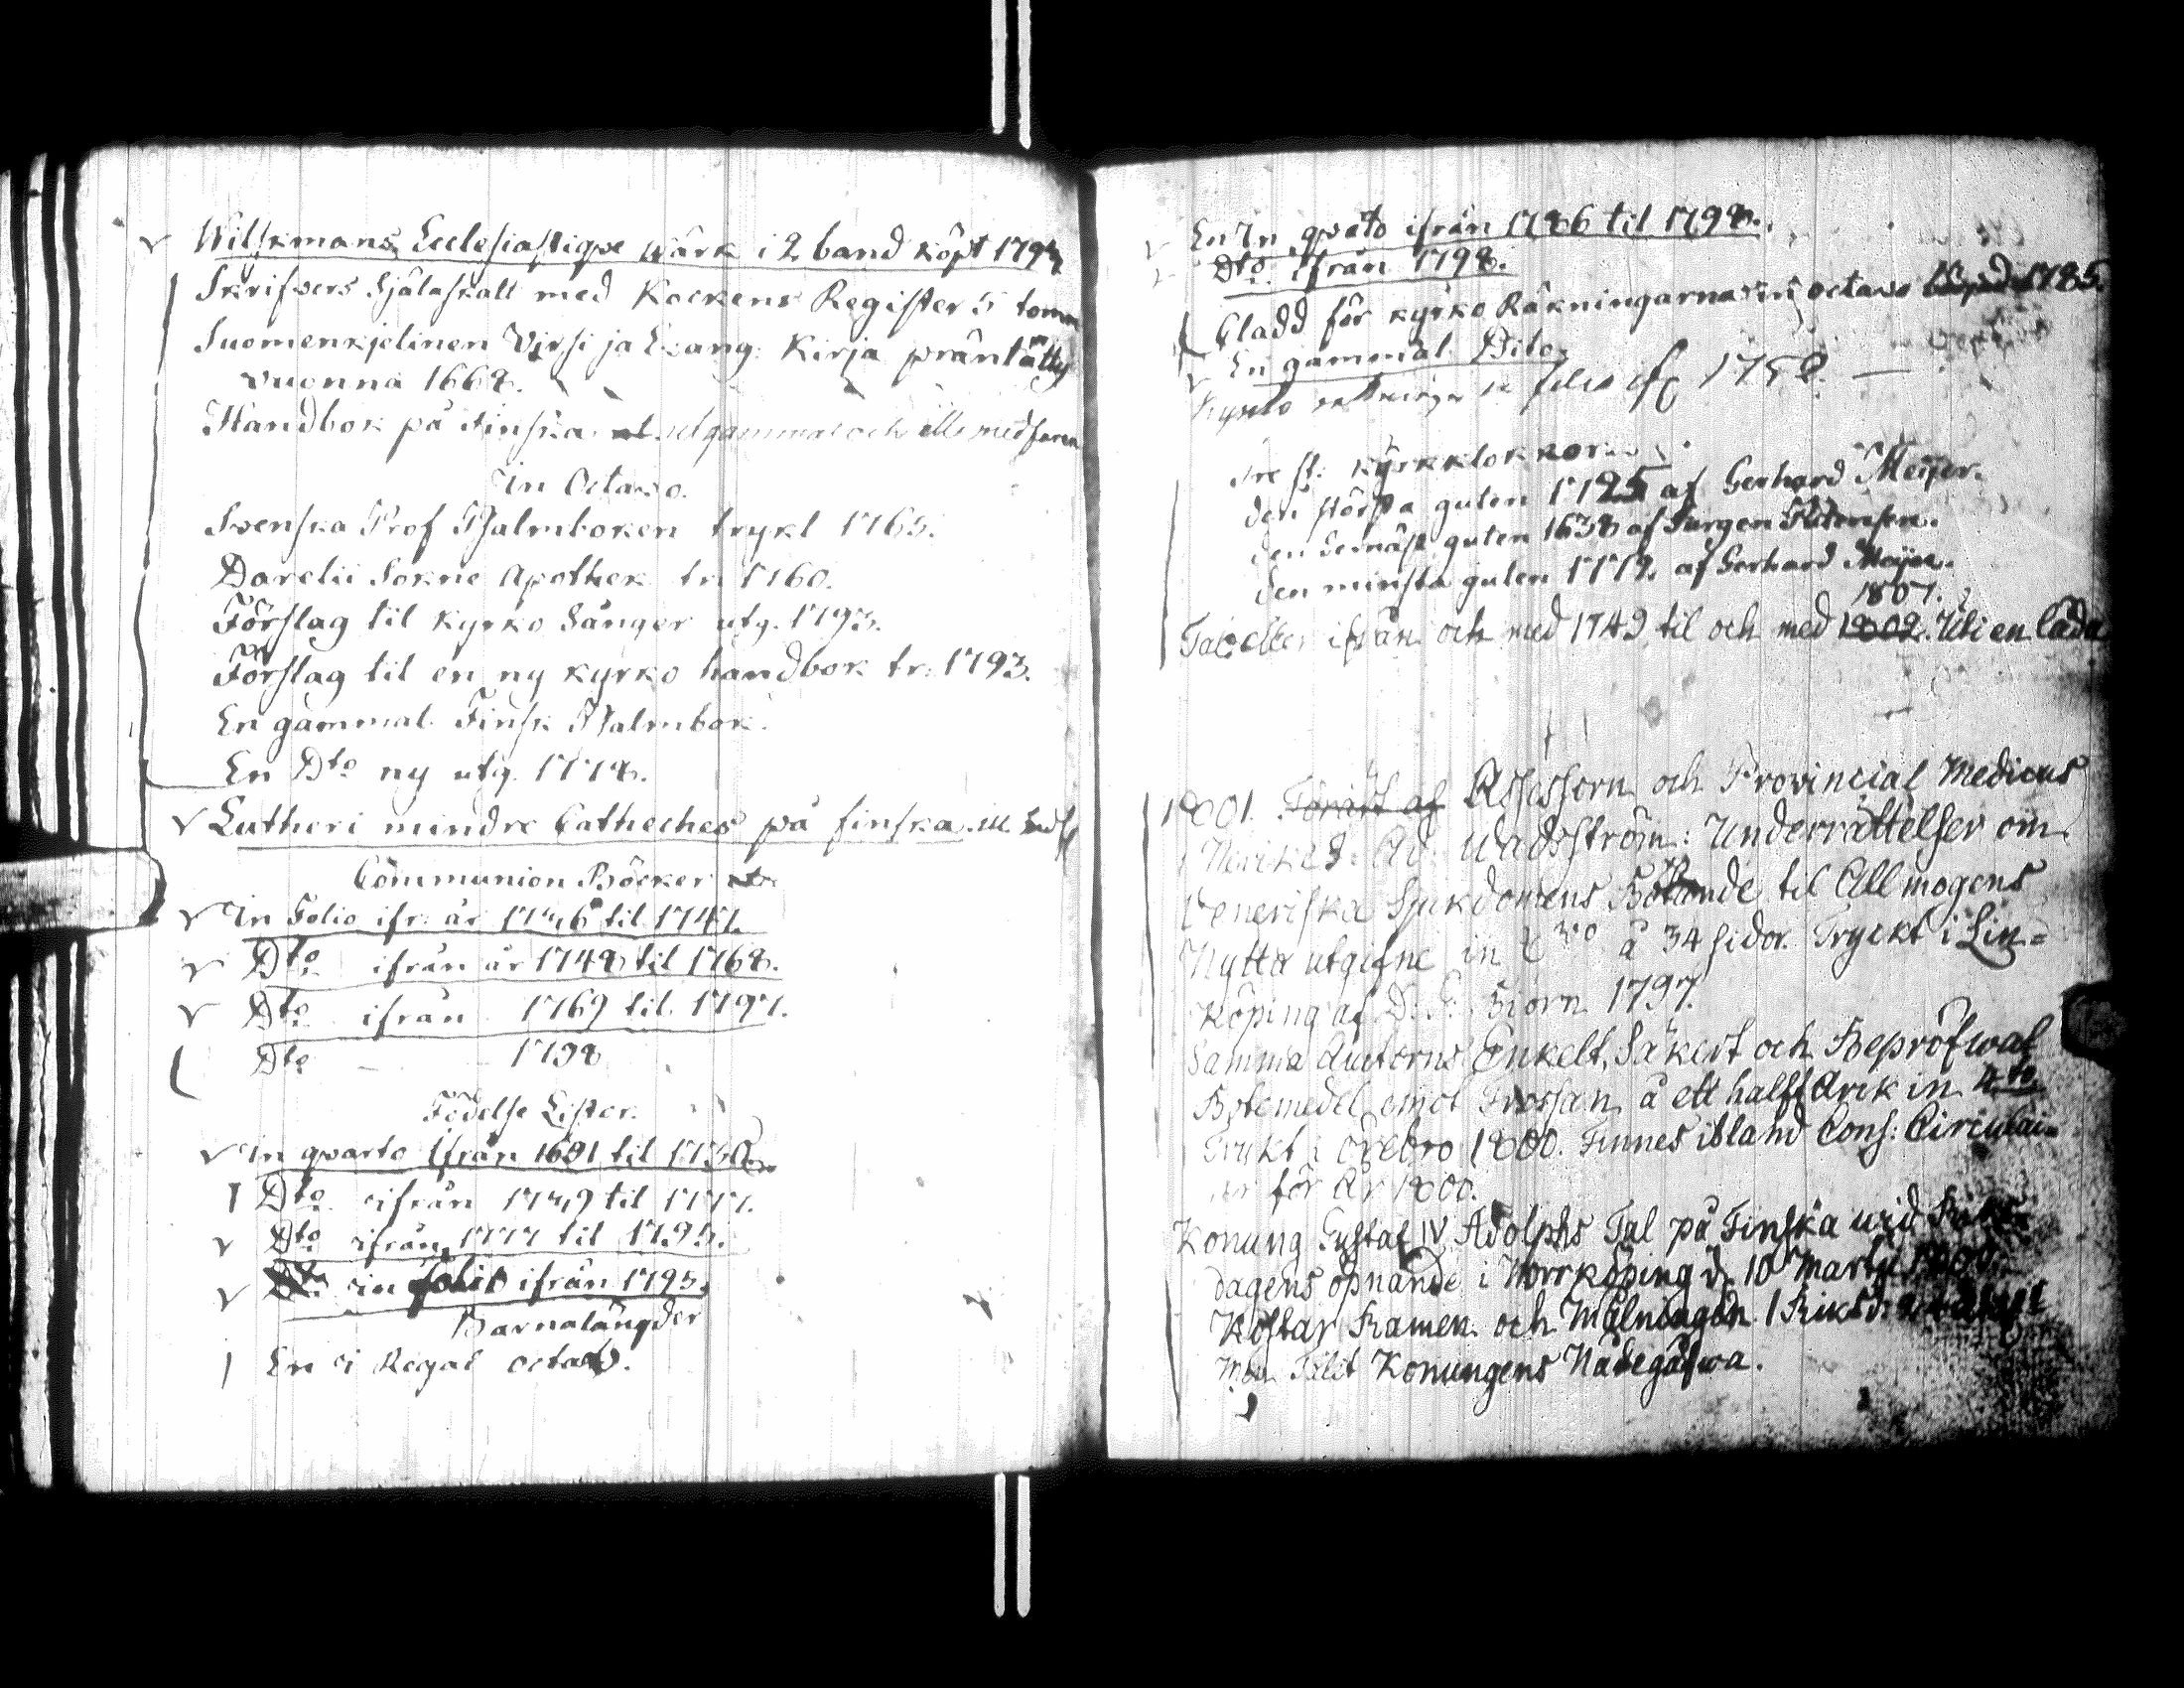 Wilskmans Ecclesiastiqve wärk i 2 band köpt 1794
Skrifvers Själaskatt med Kockens Register 5 tomer
Suomenkjelinen Virsi ja Evang: Kirja präntätty
vuonna 1668.
Handbok på Finska utgammal och illa medfaren
in Octavo.
Svenska Prof Psalmboken trykt 1765.
Darelii Sokne Apothek tr. 1760.
Förslag til Kyrko Sånger utg. 1793.
Förslag til en ny kyrko handbok tr: 1793.
En gammal Finsk Psalmbok.
En Dto ny utg. 1778.
Lutheri mindre Catheches på finska.
Communion Böcker
In Folio ifr: år 1736 til 1747.
Dto ifrån år 1748 til 1768.
Dto ifrån 1769 til 1797.
Dto 1798
Födelse Lister.
in qvarto ifrån 1691 til 1730.
Dto ifrån 1739 til 1777.
Dto ifrån 1777 til 1795.
in folio ifrån 1795.
Barnalängder
En i Regal octav.
En In qvarto ifrån 1786 til 1798.
Dto ifrån 1798.
Cladd för kyrko Räkningarna in octavo 1785.
En gammal Dito.
Kyrko räkningar in folio ifr 1758.
Tre st: kyrkklokkor.
den största guten 1725 af Gerhard Meijer.
den dernäst guten 1638 af Jurgen
den minsta guten 1779. af Gerhard Meijer.
1807.
Tabeller ifrån och med 1749 til och med 1802. Uti en låda
1801. Förärt af Assessorn och Provincial Medicus
Ad. Wadsström: Underrättelser om
Veneriska Sjukdomens Botande til Allmogens
Nytta utgifne in 8vo å 34 sidor. Tryckt i Lin=
köping af D. G. Biörn 1797.
Samma Auctorns Enkelt, Säkert och Beprofwat
Botemedel emot Frossan å ett halft Ark in 4to.
Trykt i Örebro 1800. Finnes ibland Cons: Circulai=
rer för År 1800.
Konung Gustaf IV Adolphs Tal på Finska wid Riks=
dagens öpnande i Norrköping d. 10 Martii 1800.
Kostar Ramen och Målningen 1 Riksd:
men Talet Konungens Nådegåfwa.